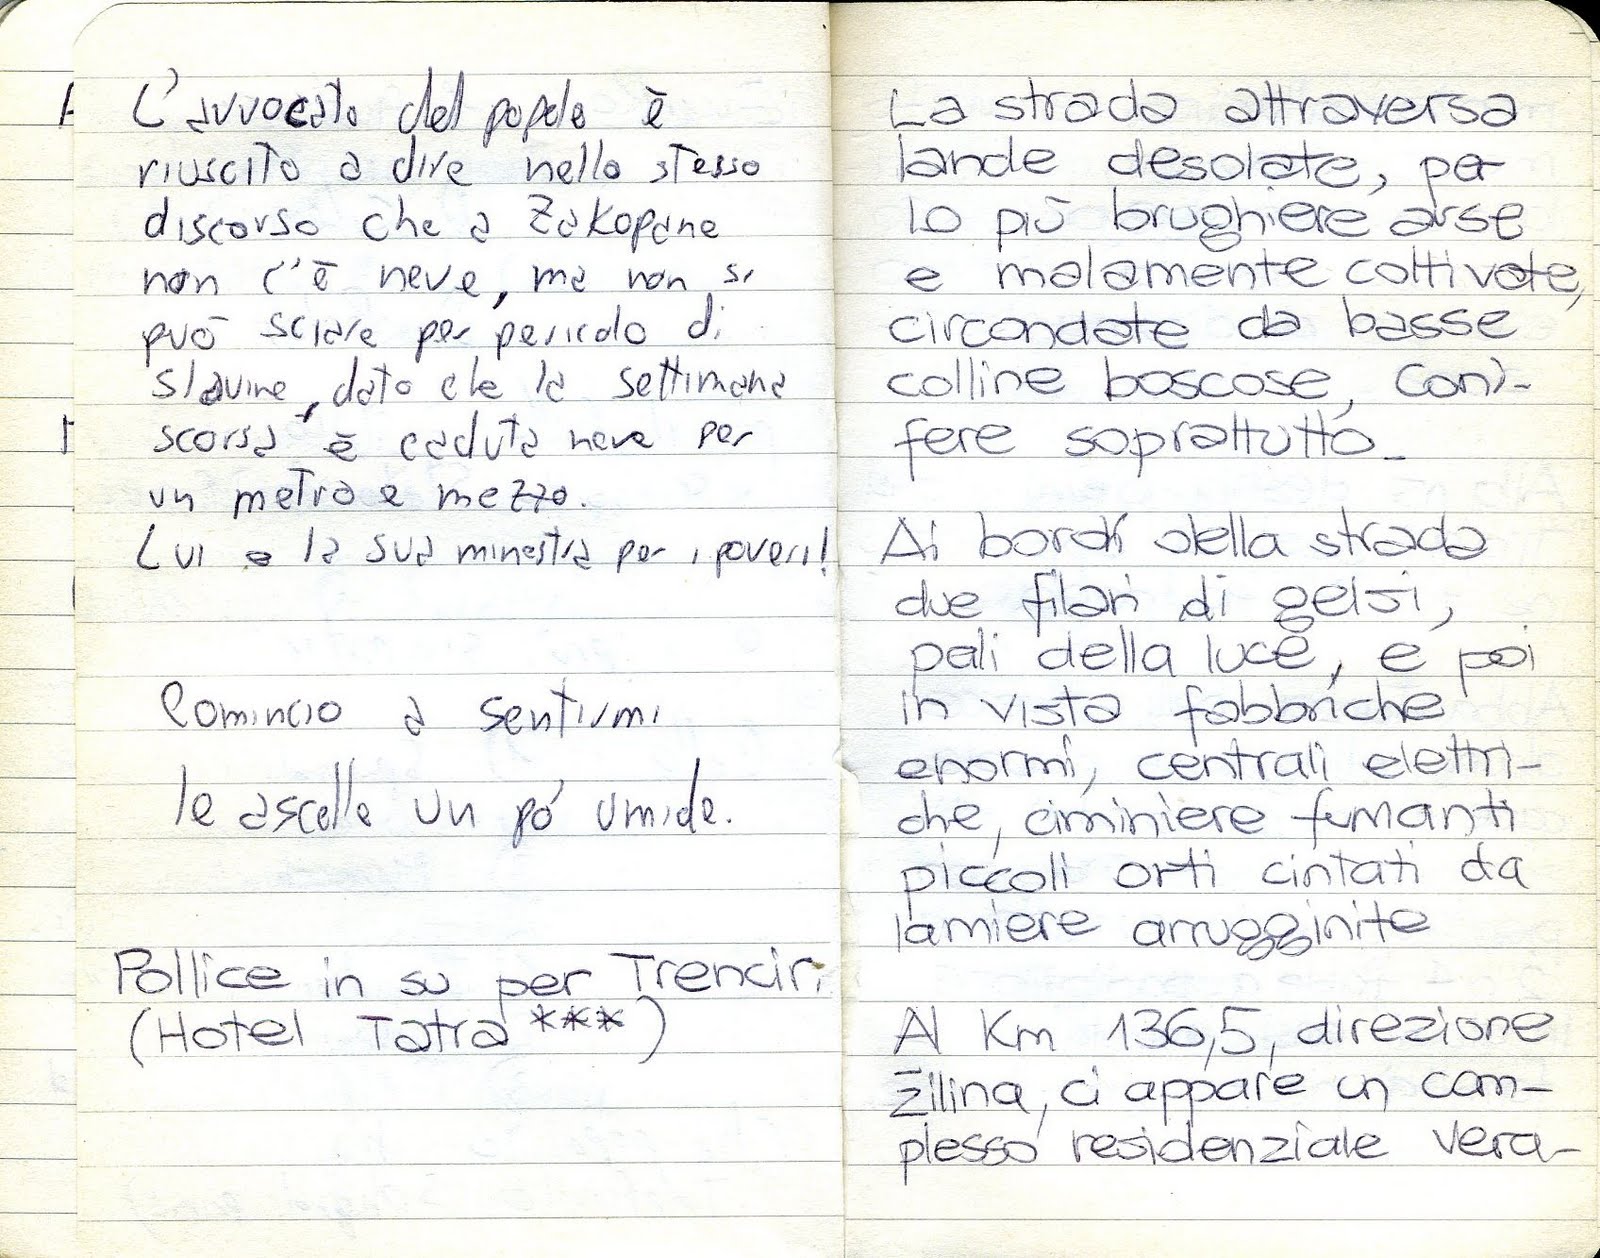 L'avvocato del popolo è
riuscito a dire nello stesso
discorso che a Zakopane
non c'è neve, ma non si
può sciare per pericolo di
slavine, dato che la settimana
scorsa è caduta neve per
un metro e mezzo.
Lui e la sua minestra per i poveri!
Comincio a sentirmi
le ascelle un pó umide.
Pollice in su per Trencin,
(Hotel Tatra ***)
La strada attraversa
lande desolate, per
lo più brughiere arse
e malamente coltivate,
circondate da basse
colline boscose, coni-
fere soprattutto.
Ai bordi della strada
due filari di gelsi,
pali della luce, e poi
in vista fabbriche
enormi, centrali elettri-
che, ciminiere fumanti
piccoli orti cintati da
lamiere arrugginite
Al Km 136,5, direzione
Žilina, ci appare un com-
plesso residenziale vera-